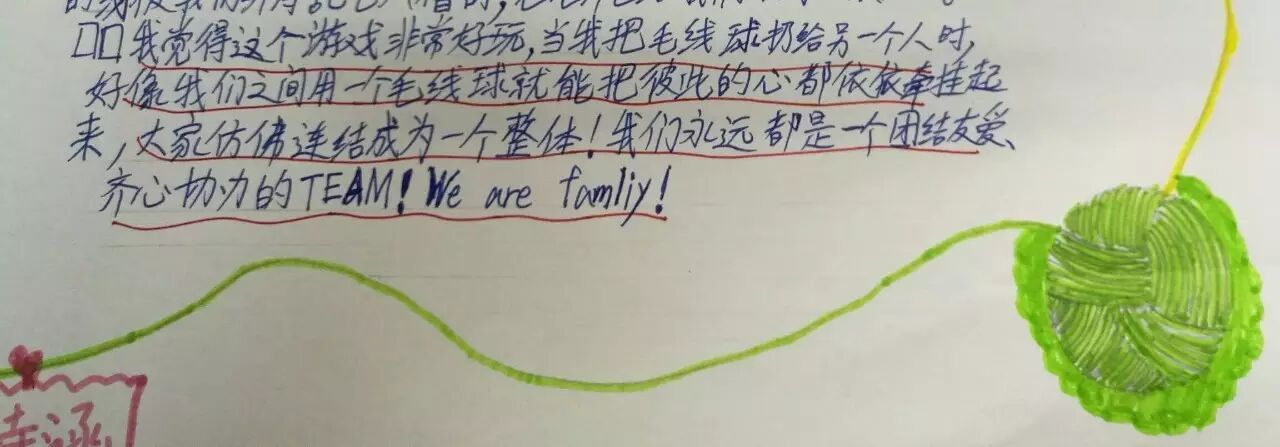 □□我觉得这个游戏非常好玩,当我把毛线球扔给另一个人时,
好像我们之间用一个毛线球就能把彼此的心都依依牵挂起
来,大家仿佛连结成为一个整体!我们永远都是一个团结友爱、
齐心协力的TEAM!We are famliy!
涵